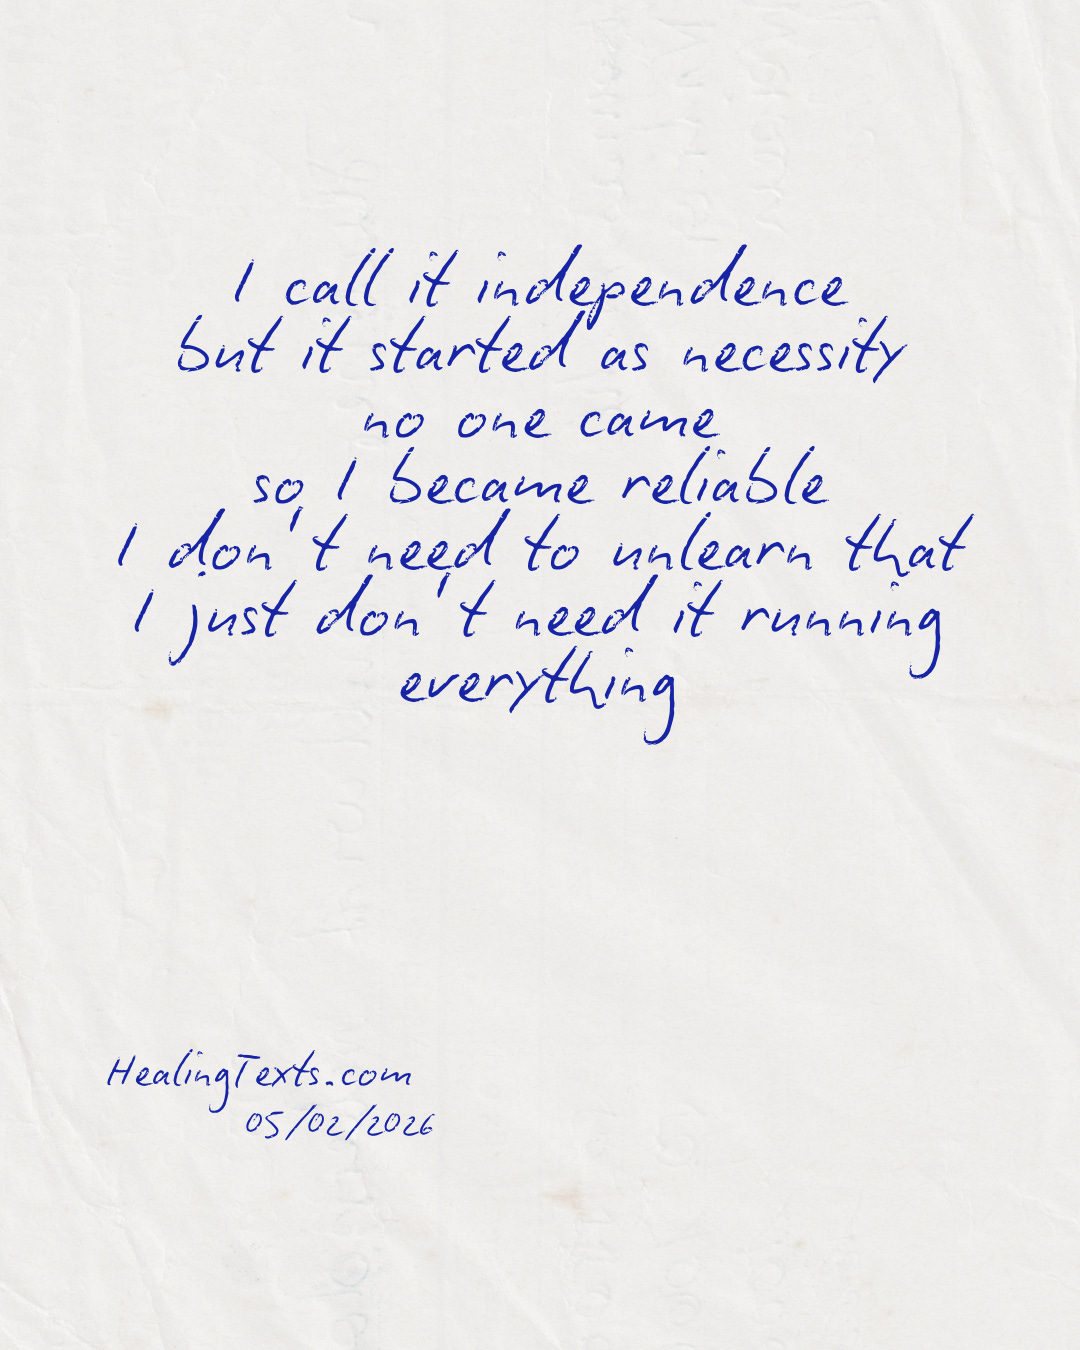 I call it independence
but it started as necessity
no one came
so I became reliable
I don't need to unlearn that
I just don't need it running
everything
HealingTexts.com
05/02/2026